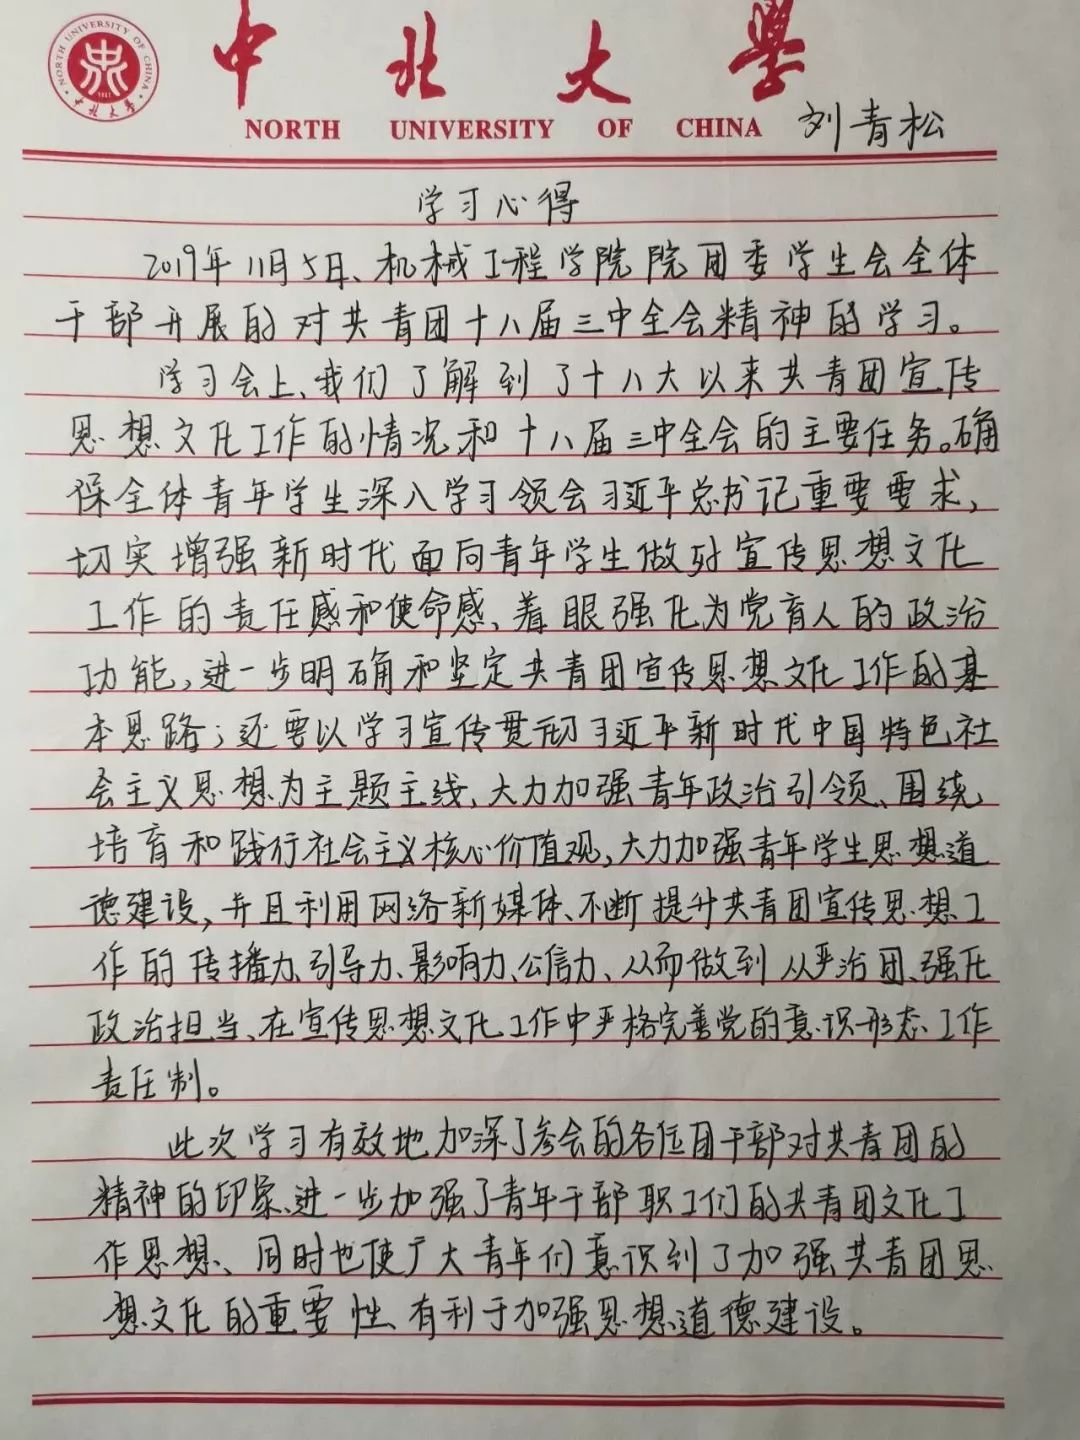 中北大學
NORTH UNIVERSITY OF CHINA
NORTH UNIVERSITY OF CHINA
中北大学
1941
刘青松
学习心得
2019年11月5日、机械工程学院院团委学生会全体
干部开展的对共青团十八届三中全会精神的学习。
学习会上、我们了解到了十八大以来共青团宣传
思想文化工作的情况和十八届三中全会的主要任务。确
保全体青年学生深入学习领会习近平总书记重要要求,
切实增强新时代面向青年学生做好宣传思想文化
工作的责任感和使命感、着眼强化为党育人的政治
功能,进一步明确和坚定共青团宣传思想文化工作的基
本思路;还要以学习宣传贯彻习近平新时代中国特色社
会主义思想为主题主线,大力加强青年政治引领、围绕
培育和践行社会主义核心价值观,大力加强青年学生思想道
德建设,并且利用网络新媒体、不断提升共青团宣传思想工
作的传播力、引导力、影响力、公信力、从而做到从严治团、强化
政治担当、在宣传思想文化工作中严格完善党的意识形态工作
责任制。
此次学习有效地加深了参会的各位团干部对共青团的
精神的印象、进一步加强了青年干部职工们的共青团文化工
作思想、同时也使广大青年们意识到了加强共青团思
想文化的重要性、有利于加强思想道德建设。